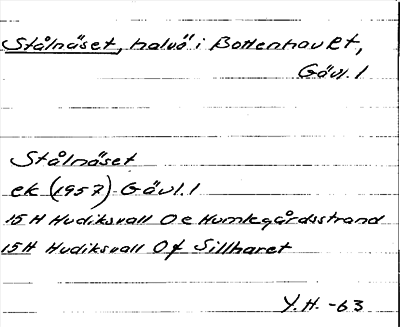 Stålnäset, halvö i Bottenhavet,
Gävl. l
Stålnäset
ek (1957) Gävl. l
15 H Hudiksvall 0 e Humlegårdsstrand
15 H Hudiksvall 0 f Sillharet
Y.H. -63